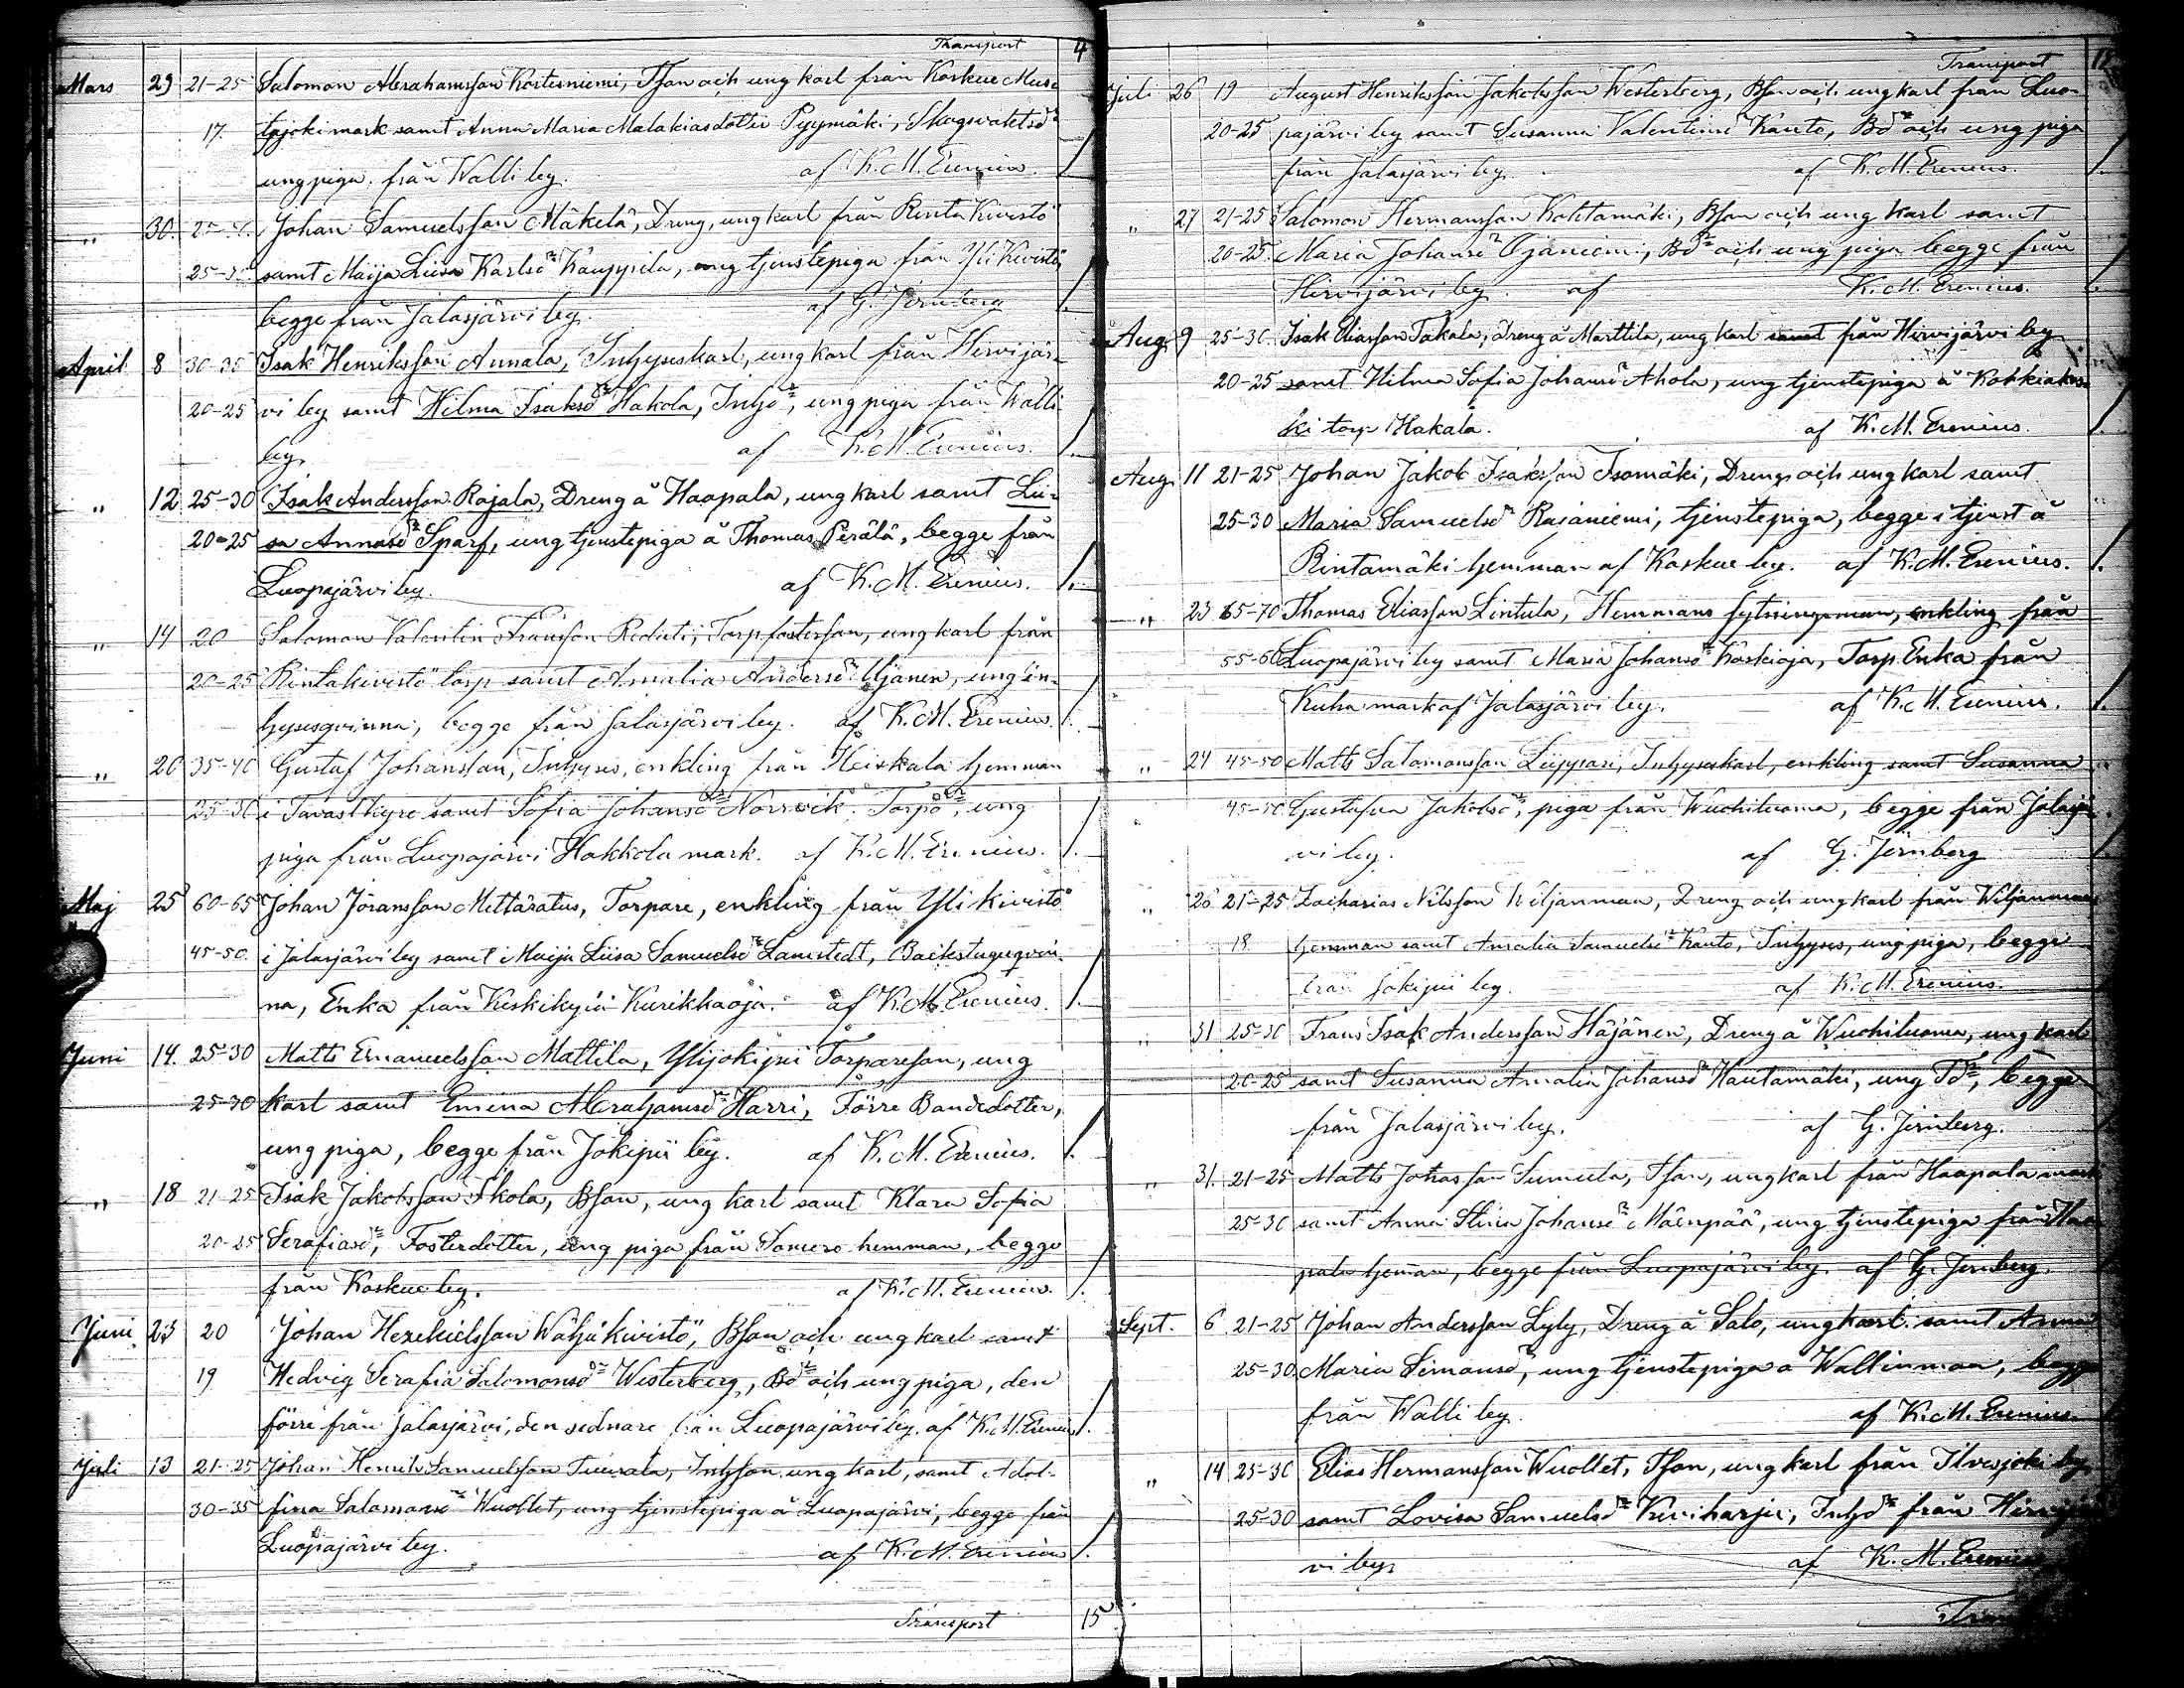 Transport 4
Mars 29 21-25 Salomon Abrahamsson Kortesniemi, Tson och ung karl från Koskue Mus-
17. tajoki mark samt Anna Maria Malakiasdotter Pyymäki, Skogvaktsdr
ung piga från Walli by. af K. M. Erenius. 1.
" 30. Johan Samuelsson Mäkelä, Dreng, ung karl från Rinta Kivistö
25-30 samt Maija Liisa Karlsdr Kauppila, ung tjenstepiga från Yli Kivistö,
begge från Jalasjärvi by. af G. Jernberg 1.
April 8 30-35 Isak Henriksson Annala, Inhyseskarl, ung karl från Hirvijär-
20-25 vi by samt Hilma Isaksdr Hakola, Inhdr, ung piga från Walli
by. af K. M. Erenius. 1.
" 12 25-30 Isak Andersson Rajala, Dreng å Haapala, ung karl samt Lii-
20-25 sa Annasdr Sparf, ung tjenstepiga å Thomas Perälä, begge från
Luopajärvi by. af K. M. Erenius. 1.
" 14 20 Salomon Valentin Fransson, Torpfosterson, ung karl från
20-25 Rintakivistö torp samt Amalia Andersdr Ujanen, ung in-
hysesqvinna, begge från Jalasjärvi by. af K. M. Erenius. 1.
" 20 35-40 Gustaf Johansson, Inhyses, enkling från Heiskala hemman
25-30 i Tavastkyro samt Sofia Johansdr Norrvik, Torpdr, ung
piga från Luopajärvi Hakkola mark. af K. M. Erenius. 1.
Maj 25 60-65 Johan Jöransson Mettäratus, Torpare, enkling från Yli Kivistö
45-50. i Jalasjärvi by samt Maija Liisa Samuelsdr Lamstedt, Backstuguqvin-
na, Enka från Keskikylä Kurikkaoja. af K. M. Erenius. 1.
Juni 14. 25-30 Matts Emanuelsson Mattila, Ylijokipii Torpareson, ung
25-30 karl samt Emina Abrahamsdr Harri, Förre Bondedotter,
ung piga, begge från Jokipii by. af K. M. Erenius. 1.
" 18 21-25 Isak Jakobsson Skola, Bson, ung karl samt Klara Sofia
20-25 Serafiasdr, Fosterdotter, ung piga från Somero hemman, begge
från Koskue by. af K. M. Erenius. 1.
Juni 23 20 Johan Hezekielsson Wähäkivistö, Bson och ung karl samt
19 Hedvig Serafia Salomonsdr Westerberg, Bdr och ung piga, den
förre från Jalasjärvi, den sednare från Luopajärvi by. af K. M. Erenius 1.
Juli 13 21-25 Johan Henrik Samuelsson Tuurala, Inhson, ung karl, samt Adol-
30-35 fina Salomonsdr Wuollet, ung tjenstepiga å Luopajärvi, begge från
Luopajärvi by. af K. M. Erenius 1.
Transport 15
Transport 15
Juli 26 19 August Henriksson Jakobsson Westerberg, Bson och ung karl från Luo-
20-25 pajärvi by samt Susanna Valentinsdr Kanto, Bdr och ung piga
från Jalasjärvi by. af K. M. Erenius. 1.
" 27 21-25 Salomon Hermansson Kohtamäki, Bson och ung karl samt
20-25. Maria Johansdr Ojaniemi, Bdr och ung piga begge från
Hirvijärvi by. af K. M. Erenius. 1.
Aug. 9 25-30. Isak Eliasson Takala, dreng å Marttila, ung karl samt från Hirvijärvi by
20-25 samt Hilma Sofia Johansdr Ahola, ung tjenstepiga å Kokkiakos-
ki torp Hakala. af K. M. Erenius. 1.
Aug. 11 21-25 Johan Jakob Isaksson Isomäki, Dreng och ung karl samt
25-30 Maria Samuelsdr Rajaniemi, tjenstepiga, begge i tjenst å
Rintamäki hemman af Koskue by. af K. M. Erenius. 1.
" 23 65-70 Thomas Eliasson Lintula, Hemmans sytningsman, enkling från
55-60 Luopajärvi by samt Maria Johansdr Koskioja, Torp. Enka från
Kuha mark af Jalasjärvi by. af K. M. Erenius. 1.
" 24 45-50 Matts Salomonsson Liippari, Inhyseskarl, enkling samt Susanna
45-50 Gustafva Jakobsdr, piga från Wuohiluoma, begge från Jalasjär-
vi by. af G. Jernberg 1.
" 26 21-25 Zacharias Nilsson Wiljanmaa, Dreng och ung karl från Wiljanmaa
18 hemman samt Amalia Samuelsdr Kanto, Inhyses, ung piga, begge
från Jokipii by. af K. M. Erenius.
" 31 25-30 Frans Isak Andersson Häjänen, Dreng å Wuohiluoma, ung karl
20-25 samt Susanna Amalia Johansdr Hautamäki, ung Tdr, begge
från Jalasjärvi by. af G. Jernberg.
" 31. 21-25 Matts Johansson Sumula, Tson, ung karl från Haapala mark
25-30 samt Anna Stina Johansdr Mäenpää, ung tjenstepiga från Haa-
pala hemman, begge från Luopajärvi by. af G. Jernberg.
Sept. 6 21-25 Johan Andersson Lyly, Dreng å Salo, ung karl samt Anna
25-30. Maria Simonsdr, ung tjenstepiga å Wallinmaa, begge
från Walli by. af K. M. Erenius.
" 14 25-30 Elias Hermansson Wuollet, Tson, ung karl från Ilvesjoki by
25-30 samt Lovisa Samuelsdr Kiviharju, Inhdr från Hirvijär-
vi by. af K. M. Erenius